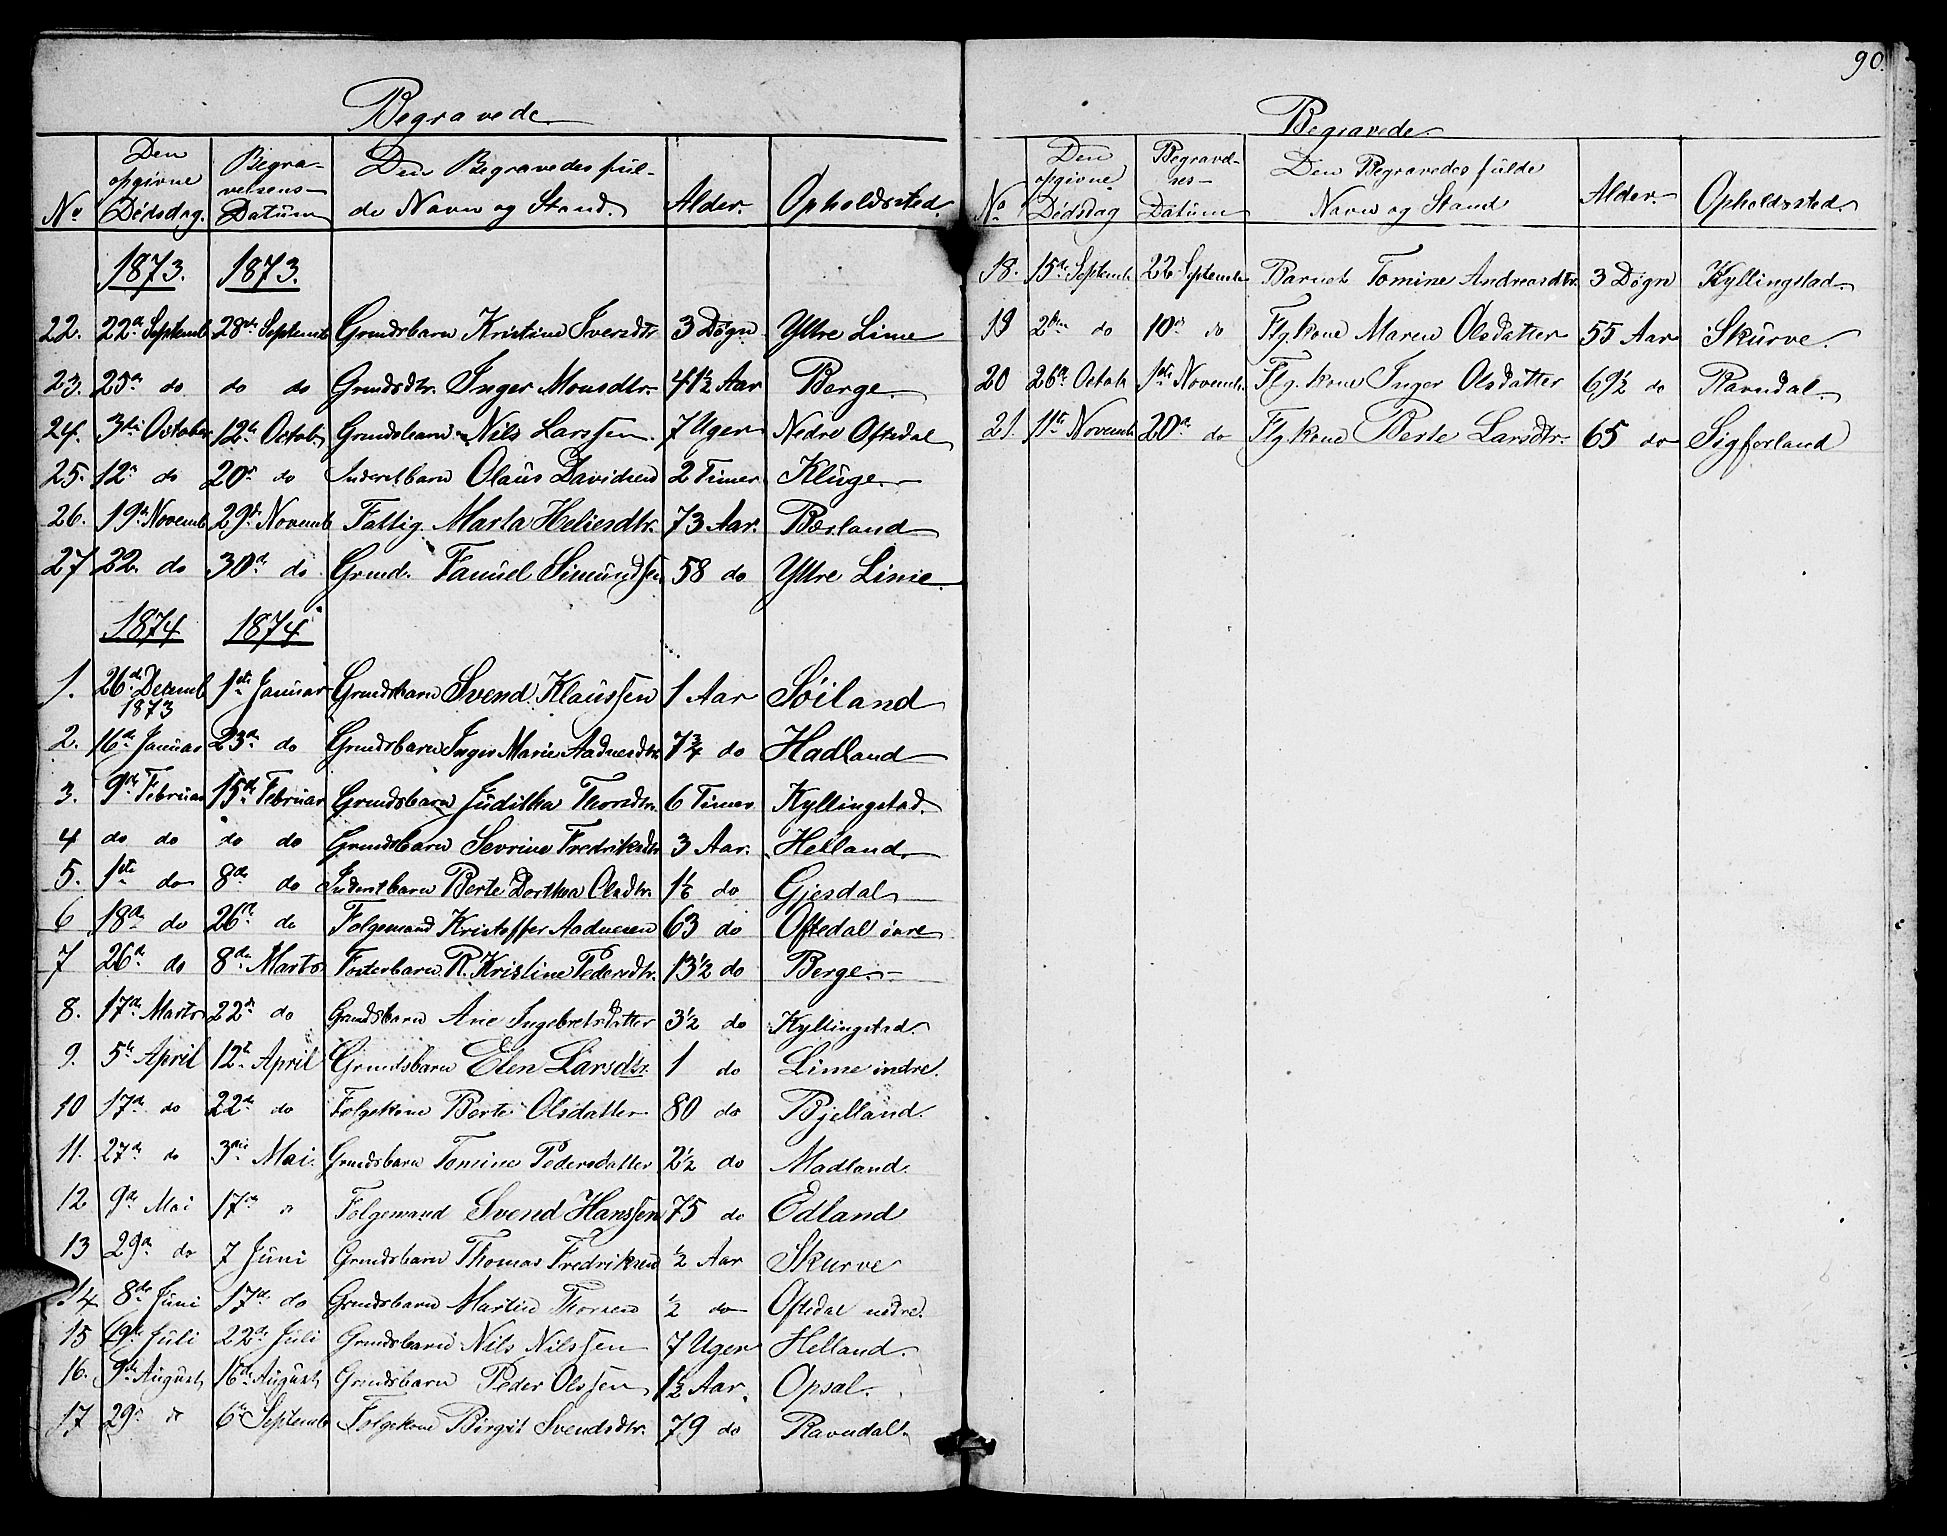 Begravede
No Den opgivne Dödsdag. Begravelsens Datüm Den Begravedes fülde Navn og Stand. Alder. Opholdssted.
1873. 1873.
22. 22de Septemb 28de Septemb Grmdsbarn Kristine Iversdtr. 3 Døgn Yttre Lime
23. 23de do do do Grmdsdtr. Inger Monsdtr. 41½ Aar Berge.
24. 3die October 12te Octob Grmdsbarn Nils Larssen. 7 Uger Nedre Oftedal
25. 12te do 20de do Inderstbarn Olaüs Davidsen 2 Timer Klüge.
26. 19de Novemb 29de Novemb Fattig Marta Heliesdtr. 73 Aar. Bærland
27 22. do 30de do Grmd. Samüel Simündsen 58 do Yttre Lime.
1874 1874
1. 26de Decemb 1873 1ste Janüar Grmdsbarn Svend Klaüssen 1 Aar Söiland
2. 16de Janüar 23de do Grmdsbarn Inger Marie Aadnesdtr. 7¾ do Hadland
3. 9de Februar 15de Februar Grmdsbarn Jüditha Thorsdtr. 6 Timer Kyllingstad.
4 do do do do Grmdsbarn Sevrine Fredriksdtr 3 Aar. Helland.
5. 1ste do 8de do Inderstbarn Berte Dorthea Olsdtr. do Gjesdal
6 18de do 26de do Folgemand Kristoffer Aadnesen 63 do Oftedal övre
7 26de do 8de Marts Fosterbarn R. Kristine Pedersdtr. 13½ do Berge.
8. 17de Marts 22de do Grmdsbarn Ane Ingebretsdatter 3½ do Kyllingstad.
9. 5te April 12te April Grmdsbarn Elen Larsdtr. 1 do Lime indre.
10 17de do 22de do Folgekone Berte Olsdatter 80 do Bjelland.
11. 27de do 3die Mai. Grmdsbarn Tomine Pedersdatter 2½ do Madland.
12 9de Mai 17de " Folgemand Svend Hanssen 75 do Edland
13 29de do 7 Jüni Grmdsbarn Thomas Fredriksen ½ Aar Skurve
14 8de Jüni 17de do Grmdsbarn Martin Thorsen ½ do Oftedal nedre.
15 Jüli 22de Jüli Grmdsbarn Nils Nilssen 7 Uger Helland.
16. 9de Aügust 16de Aügust Grmdsbarn Peder Olssen 1½ Aar. Opsal.
17 29de do 6te Septemb Folgekone Birgit Svendsdtr. 79 do Ravndal.
90.
Begravede
No Den opgivne Dödsdag Begravelses- Datüm Den Begravedes fülde Navn og Stand Alder. Opholdssted.
18. 15de Septemb 22 Septemb Barnet Tomine Andreasdtr. 3 Døgn Kyllingstad.
19 2den do 10de do Flg.kone Maren Olsdatter 55 Aar Skürve.
20 26de Octob 1ste Novemb. Flg.kone Inger Olsdatter 69½ do Ravndal.
21. 11te Novemb 20de do Flg.kone Berte Larsdtr. 65 do Sigforland